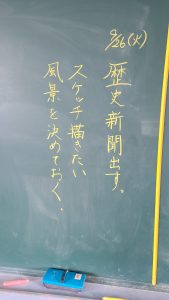 9/26(火)
歴史新聞出す。
スケッチ描きたい
風景を決めておく。